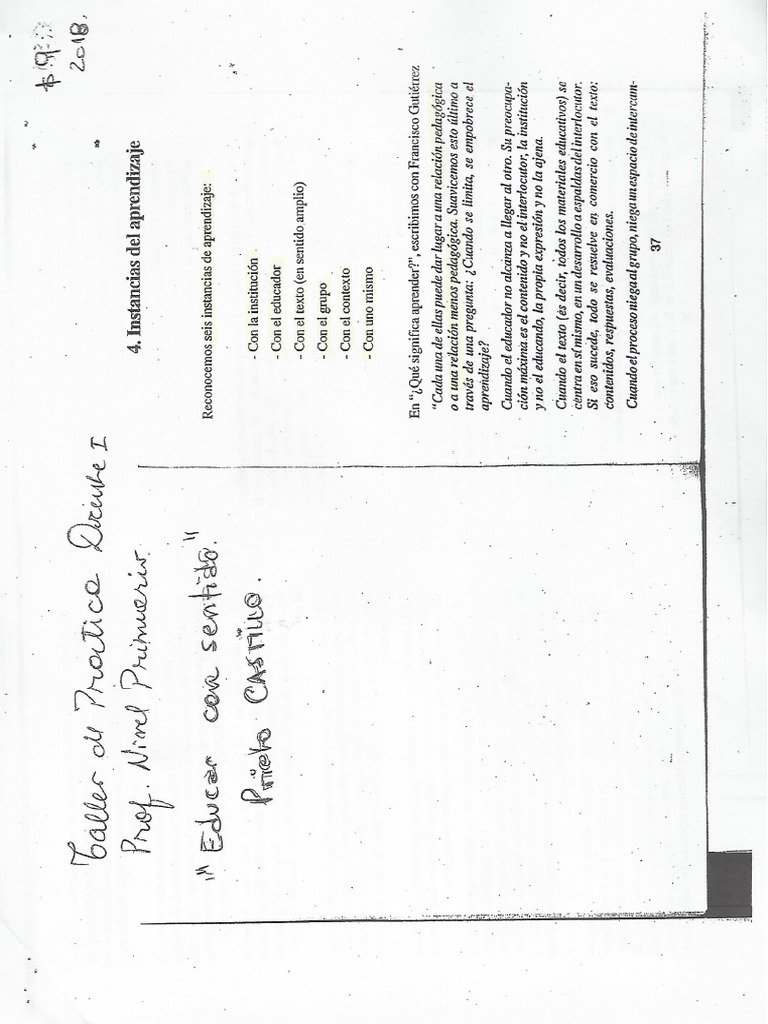 Taller de Practica Docente I
Prof. Nivel Primario.
"Educar con sentido."
Prieto CASTILLO.
2018.
4. Instancias del aprendizaje
Reconocemos seis instancias de aprendizaje:
- Con la institución
- Con el educador
- Con el texto (en sentido amplio)
- Con el grupo
- Con el contexto
- Con uno mismo
En “¿Qué significa aprender?”, escribimos con Francisco Gutiérrez
“Cada una de ellas puede dar lugar a una relación pedagógica
o a una relación menos pedagógica. Suavicemos esto último a
través de una pregunta: ¿Cuando se limita, se empobrece el
aprendizaje?
Cuando el educador no alcanza a llegar al otro. Su preocupa-
ción máxima es el contenido y no el interlocutor, la institución
y no el educando, la propia expresión y no la ajena.
Cuando el texto (es decir, todos los materiales educativos) se
centra en sí mismo, en un desarrollo a espaldas del interlocutor.
Si eso sucede, todo se resuelve en comercio con el texto:
contenidos, respuestas, evaluaciones.
Cuando el proceso niega al grupo, niega un espacio de intercam-
37